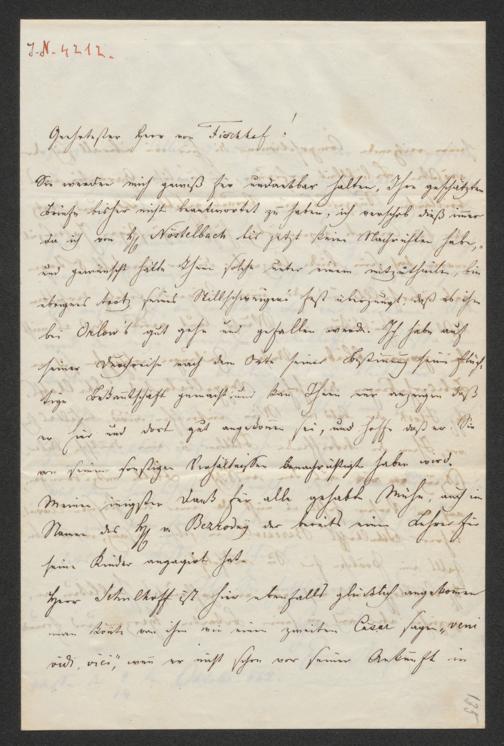 J. N. 4212.
Geehrtester Herr von Fischhof!
Sie werden mich gewiß für undankbar halten, Ihre geschätzten
Briefe bisher nicht beantwortet zu haben, ich verschob dieß immer
da ich von H. Nöstelbach bis jetzt keine Nachrichten habe,
und gewünscht hätte Ihnen solche unter einem mitzutheilen, bin
übrigens trotz seines Stillschweigens fest überzeugt daß es ihm
bei Orlow's gut gehe und gefallen werde. Ich habe auf
seiner Durchreise nach den Orte seiner Bestimmung seine flüch-
tige Bekanntschaft gemacht, und kan Ihnen nur anzeigen daß
er hier und dort gut angekomen sei, und hoffe daß er Sie
von seinen sonstigen Verhältnissen benachrichtigt haben wird.
Meinen innigsten Dank für alle gehabte Mühe, auch im
Namen des H. v. der bereits einen Lehrer für
seine Kinder engagirt hat.
Herr Schulhoff ist hier ebenfalls glücklich angekommen
man könte von ihm wie einem zweiten Cesar sagen „veni
vidi, vici", wen er nicht schon vor seiner Ankunft in
135